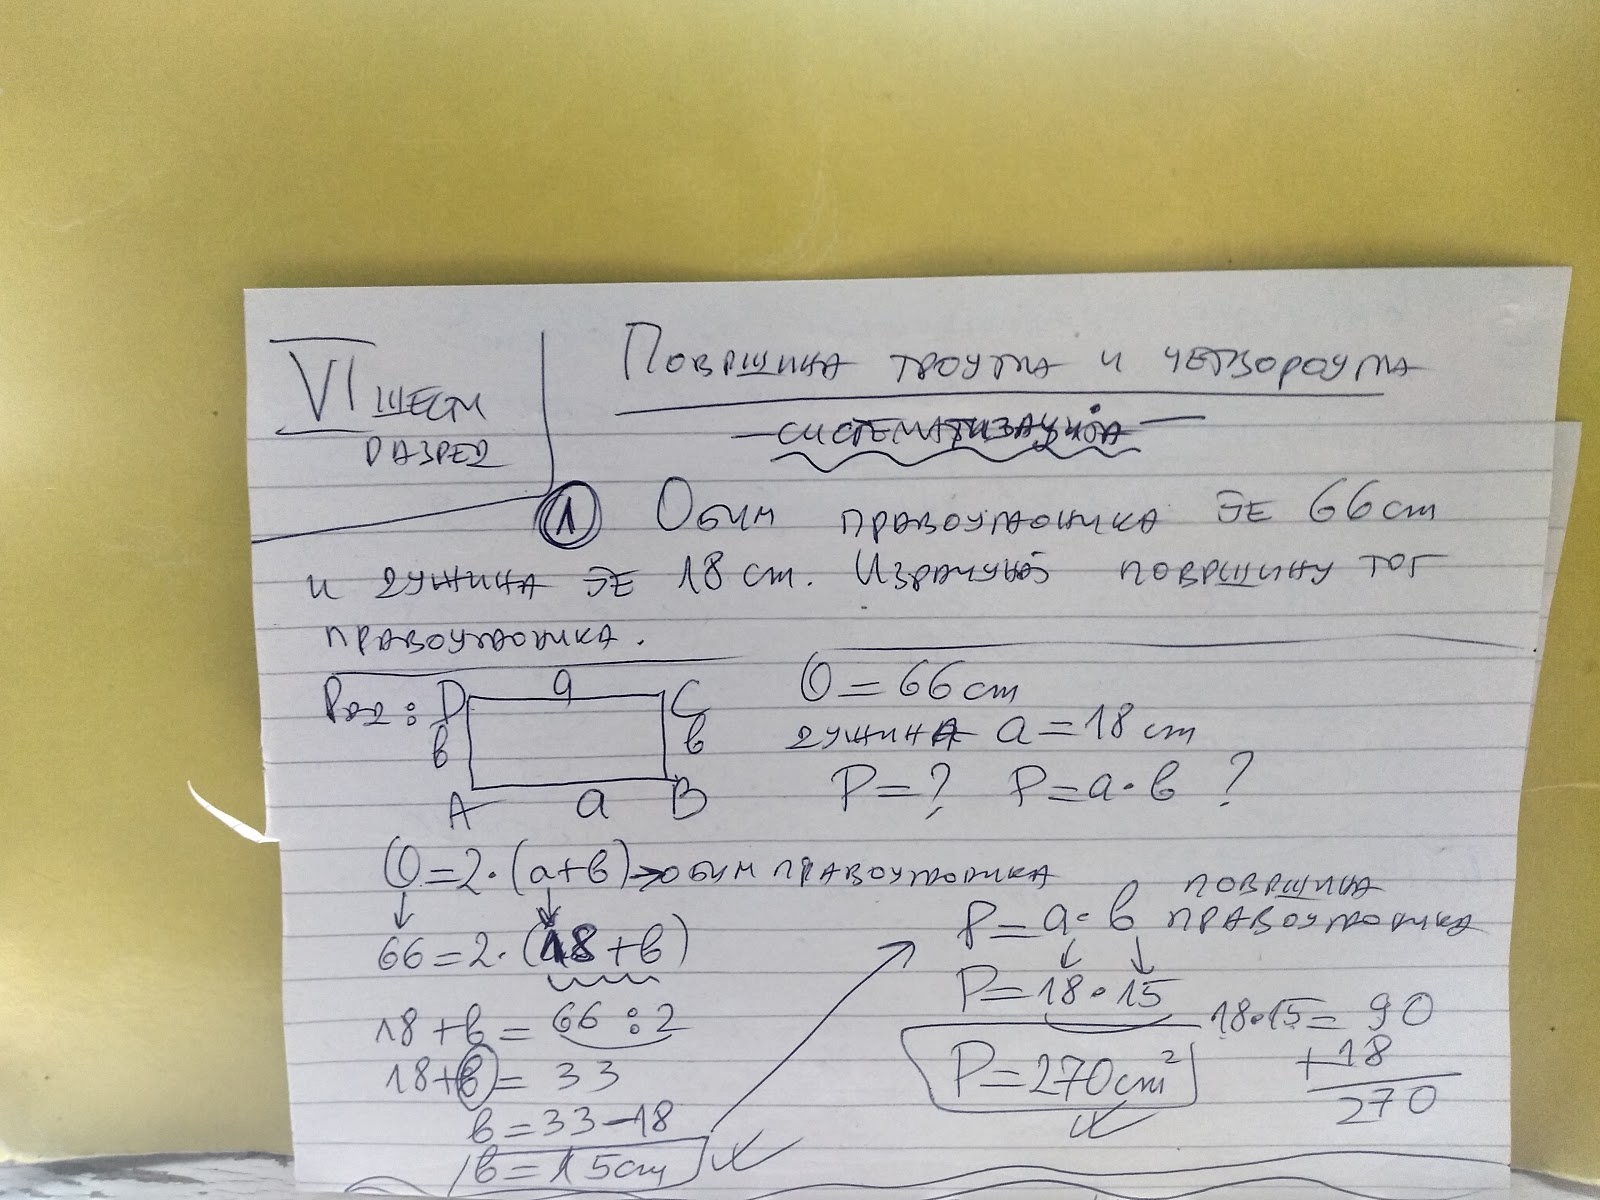 VI ШЕСТИ
РАЗРЕД
ПОВРШИНА ТРОУГЛА И ЧЕТВОРОУГЛА
— СИСТЕМАТИЗАЦИЈА —
1 ОБИМ ПРАВОУГАОНИКА ЈЕ 66 cm
И ДУЖИНА ЈЕ 18 cm. ИЗРАЧУНАЈ ПОВРШИНУ ТОГ
ПРАВОУГАОНИКА.
Рад:
D a C
b b
A a B
O = 66 cm
ДУЖИНА a = 18 cm
P = ? P = a · b ?
O = 2 · (a + b) → ОБИМ ПРАВОУГАОНИКА
66 = 2 · (18 + b)
18 + b = 66 : 2
18 + b = 33
b = 33 – 18
b = 15 cm
P = a · b ПОВРШИНА
ПРАВОУГАОНИКА
P = 18 · 15
P = 270 cm²
18 · 15 = 90
+ 18
270